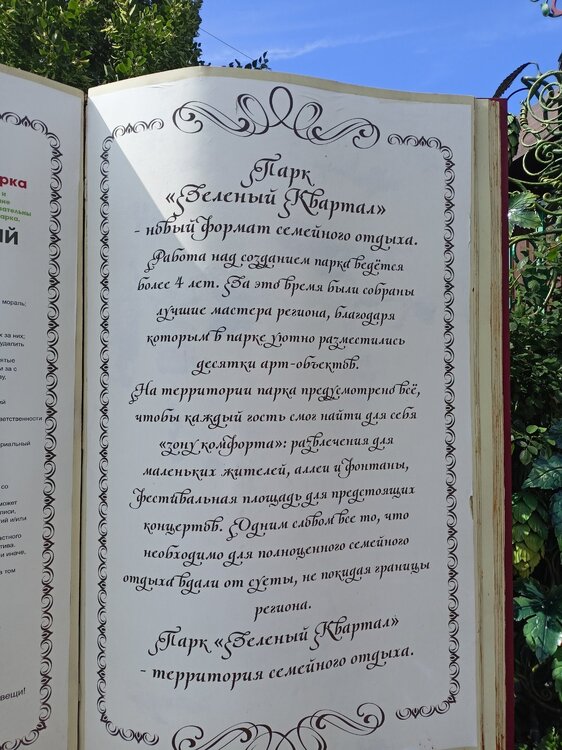 рка
и
не
ательны
арка.
ЫЙ
мораль;
за них;
удалить
ятые
м за с
ий
ответственности
ериальный
со
может
писи,
гий и/или
астного
тива.
и иначе,
а том
вещи!
Парк
«Зеленый Квартал»
- новый формат семейного отдыха.
Работа над созданием парка ведётся
более 4 лет. За это время были собраны
лучшие мастера региона, благодаря
которым в парке уютно разместились
десятки арт-объектов.
На территории парка предусмотрено всё,
чтобы каждый гость смог найти для себя
«зону комфорта»: развлечения для
маленьких жителей, аллеи и фонтаны,
фестивальная площадь для предстоящих
концертов. Одним словом все то, что
необходимо для полноценного семейного
отдыха вдали от суеты, не покидая границы
региона.
Парк «Зеленый Квартал»
- территория семейного отдыха.